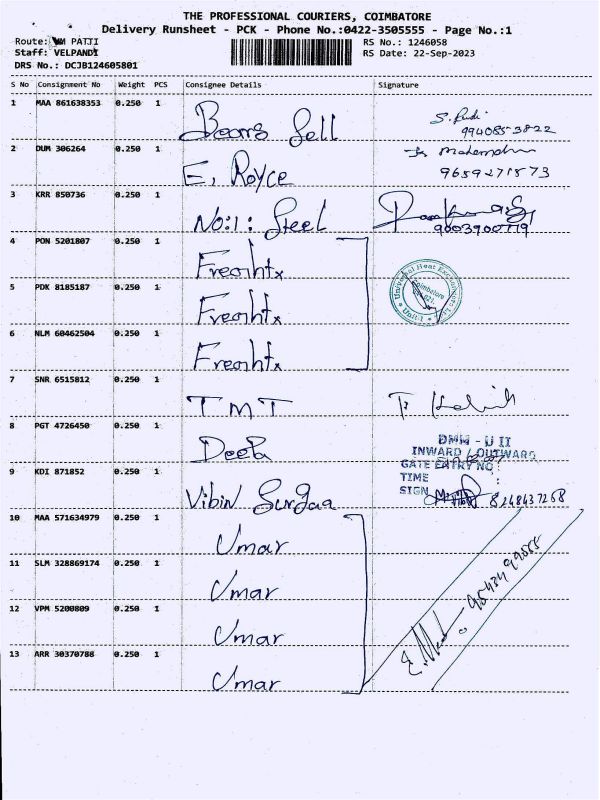 THE PROFESSIONAL COURIERS, COIMBATORE
Delivery Runsheet - PCK - Phone No.:0422-3505555 - Page No.:1
Route: PATTI
RS No.: 1246058
Staff: VELPANDI
RS Date: 22-Sep-2023
DRS No.: DCJB124605801
S No Consignment No Weight PCS Consignee Details Signature
1 MAA 861638353 0.250 1 Sell
9940853822
2 DUM 306264 0.250 1 E. Royce
9659271573
3 KRR 850736 0.250 1 No:1: Steel
9003900779
4 PON 5201807 0.250 1 Freohtx
5 PDK 8185187 0.250 1 Freohtx
Universal Heat Exchangers
Coimbatore
Unit-1
6 NLM 60462504 0.250 1 Freohtx
7 SNR 6515812 0.250 1 TMT
8 PGT 4726450 0.250 1 Deepa
DMW - U II
INWARD / OUTWARD
GATE ENTRY NO :
TIME :
SIGN
9 KDI 871852 0.250 1 Vibin Surjaa
8248437268
10 MAA 571634979 0.250 1 Umar
11 SLM 328869174 0.250 1 Umar
12 VPM 5200809 0.250 1 Umar
13 ARR 30370788 0.250 1 Umar